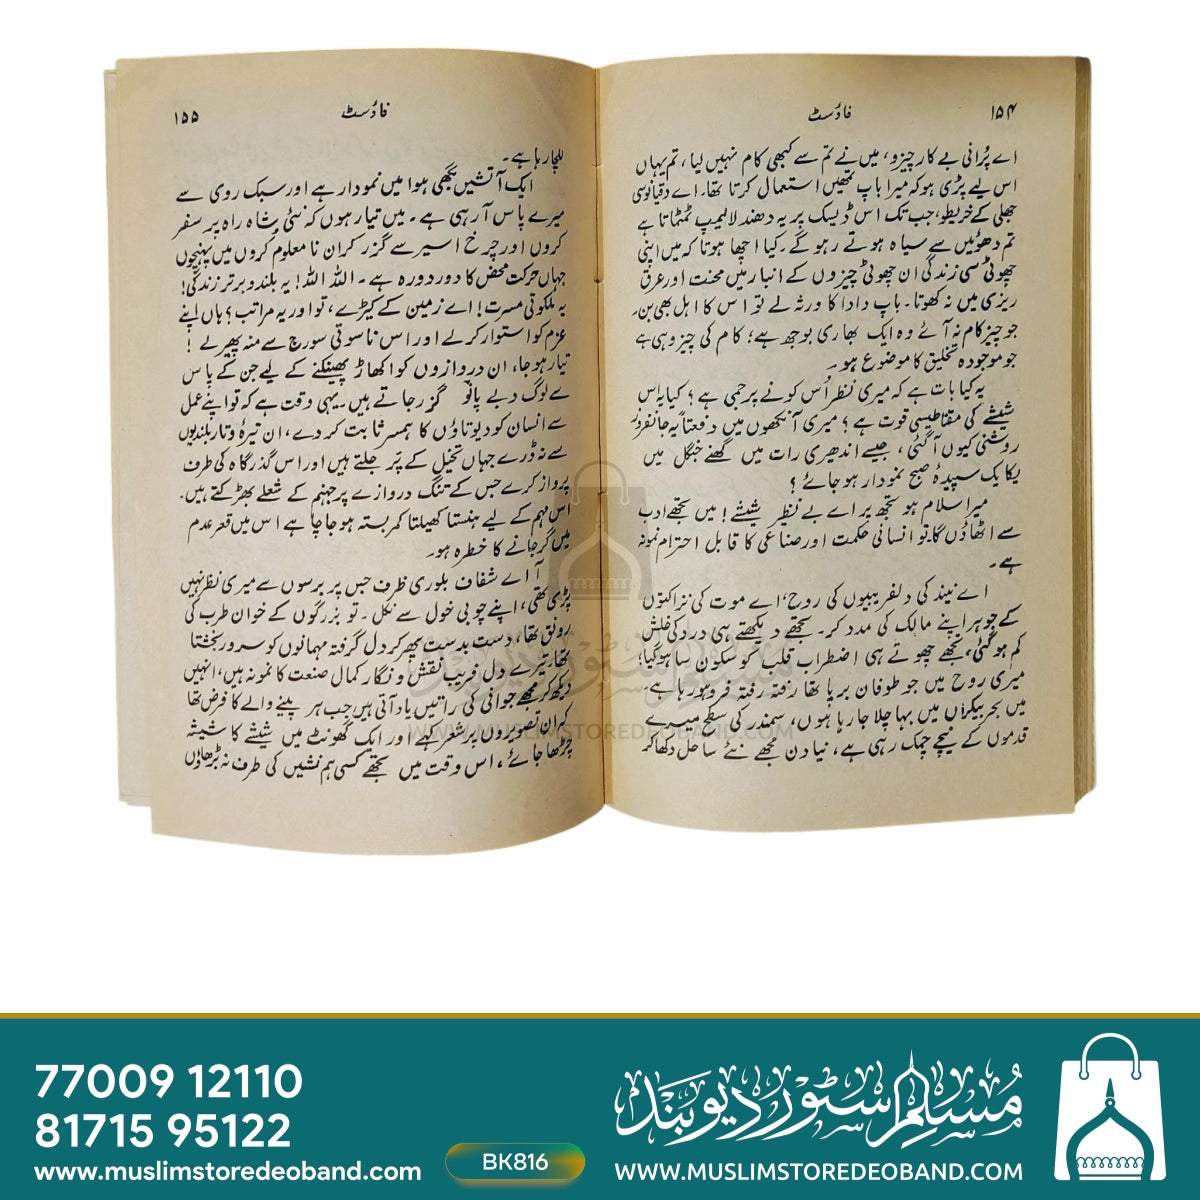 ۱۵۴
فاؤسٹ
اے پُرانی بے کار چیزو، میں نے تم سے کبھی کام نہیں لیا، تم یہاں
اس لیے پڑی ہو کہ میرا باپ تمھیں استعمال کرتا تھا۔ اے دقیانوسی
جھلی کے خریطو، جب تک اس ڈیسک پر یہ دھندلا لیمپ ٹمٹماتا ہے
تم دھوئیں سے سیاہ ہوتے رہو گے۔ کیا اچھا ہوتا کہ میں اپنی
چھوٹی سی زندگی ان چھوٹی چیزوں کے انبار میں محنت اور عرق
ریزی میں نہ کھوتا۔ باپ دادا کا ورثہ لے تو اس کا اہل بھی بن۔
جو چیز کام نہ آئے وہ ایک بھاری بوجھ ہے؛ کام کی چیز وہی ہے
جو موجودہ تخلیق کا موضوع ہو۔
یہ کیا بات ہے کہ میری نظر اُس کونے پر جمی ہے؟ کیا یہ اس
شیشے کی مقناطیسی قوت ہے؟ میری آنکھوں میں دفعتاً یہ جانفروز
روشنی کیوں آگئی، جیسے اندھیری رات میں گھنے جنگل میں
یکایک سپیدۂ صبح نمودار ہو جائے؟
میرا سلام ہو تجھ پر اے بے نظیر شیشے! میں تجھے ادب
سے اٹھاؤں گا۔ تو انسانی حکمت اور صناعی کا قابل احترام نمونہ
ہے۔
اے نیند کی دلفریبیوں کی روح، اے موت کی نزاکتوں
کے جوہر اپنے مالک کی مدد کر۔ تجھے دیکھتے ہی درد کی خلش
کم ہوگئی، تجھے چھوتے ہی اضطراب قلب کو سکون سا ہوگیا؛
میری روح میں جو طوفان برپا تھا رفتہ رفتہ فرو ہو رہا ہے،
میں بحر بیکراں میں بہا چلا جا رہا ہوں، سمندر کی سطح میرے
قدموں کے نیچے چمک رہی ہے، نیا دن مجھے نئے ساحل دکھا کر
فاؤسٹ
۱۵۵
للچا رہا ہے۔
ایک آتشیں بگھی ہوا میں نمودار ہے اور سبک روی سے
میرے پاس آ رہی ہے۔ میں تیار ہوں کہ نئی شاہ راہ پر سفر
کروں اور چرخ اسیر سے گزر کر ان نا معلوم کُروں میں پہنچوں
جہاں حرکت محض کا دور دورہ ہے۔ اللہ اللہ! یہ بلند و برتر زندگی!
یہ ملکوتی مسرت! اے زمین کے کیڑے، تو اور یہ مراتب؟ ہاں اپنے
عزم کو استوار کرلے اور اس ناسوتی سورج سے منہ پھیر لے!
تیار ہو جا، ان دروازوں کو اکھاڑ پھینکنے کے لیے جن کے پاس
سے لوگ دبے پانو گزر جاتے ہیں۔ یہی وقت ہے کہ تو اپنے عمل
سے انسان کو دیوتاؤں کا ہمسر ثابت کر دے، ان تیرہ و تار بلندیوں
سے نہ ڈرے جہاں تخیل کے پَر جلتے ہیں اور اس گذر گاہ کی طرف
پرواز کرے جس کے تنگ دروازے پر جہنم کے شعلے بھڑکتے ہیں۔
اس مہم کے لیے ہنستا کھیلتا کمر بستہ ہو جا چاہے اس میں قعرِ عدم
میں گر جانے کا خطرہ ہو۔
آ اے شفاف بلوری ظرف جس پر برسوں سے میری نظر نہیں
پڑی تھی، اپنے چوبی خول سے نکل۔ تو بزرگوں کے خوان طرب کی
رونق تھا، دست بدست پھر کر دل گرفتہ مہمانوں کو سرور بخشتا
تھا، تیرے دل فریب نقش و نگار کمال صنعت کا نمونہ ہیں، انہیں
دیکھ کر مجھے جوانی کی راتیں یاد آتی ہیں جب ہر پینے والے کا فرض تھا
کہ ان تصویروں پر شعر کہے اور ایک گھونٹ میں شیشے کا شیشہ
چڑھا جائے، اس وقت میں تجھے کسی ہم نشیں کی طرف نہ بڑھاؤں
مسلم سٹور دیوبند
WWW.MUSLIMSTOREDEOBAND.COM
77009 12110
81715 95122
www.muslimstoredeoband.com
BK816
مسلم سٹور دیوبند
WWW.MUSLIMSTOREDEOBAND.COM